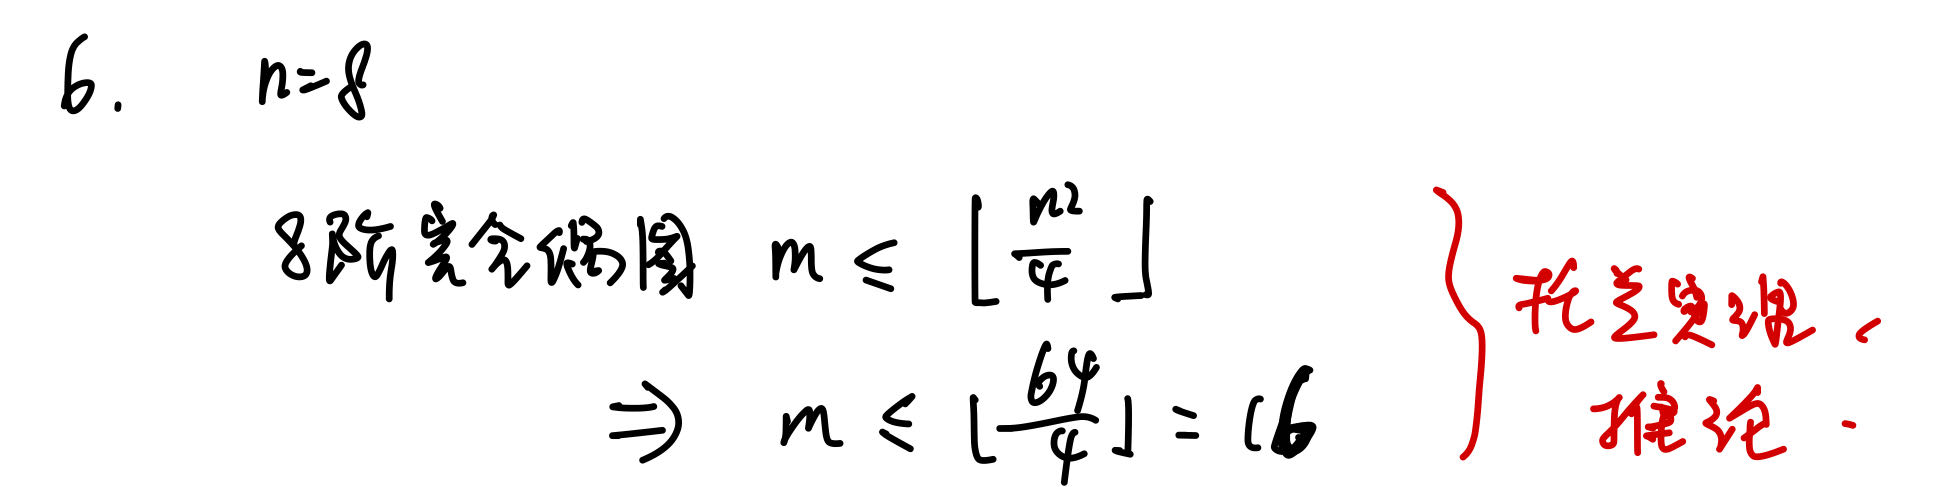 6. n=8
8阶完全偶图 m ≤ ⌊n²/4⌋
⇒ m ≤ ⌊64/4⌋ = 16
托兰定理、
推论.